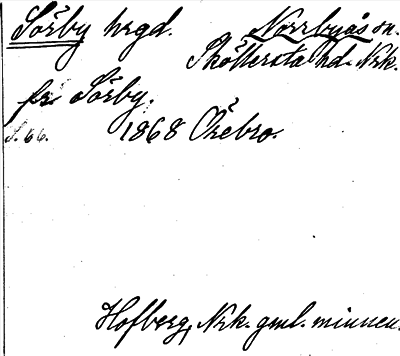 Sörby hrgd. Norrbyås sn.
Sköllersta hd. Nrk.
fr. Sörby.
S. 66. 1868 Örebro.
Hofberg, Nrk. gml. minnen.